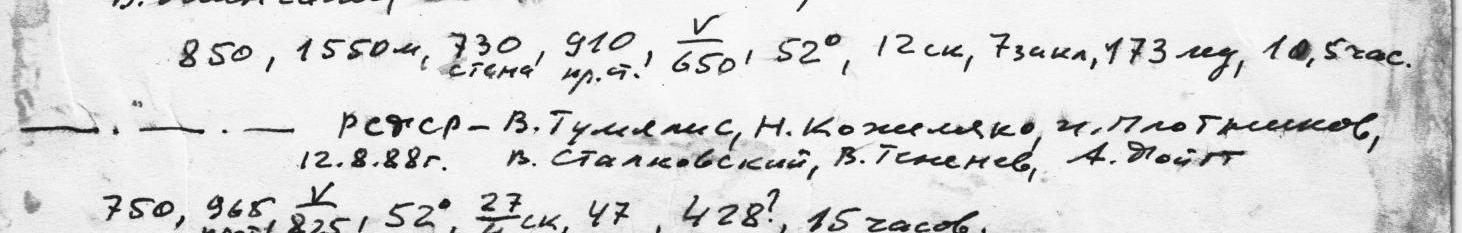 850, 1550м, 730, 910, V/650, 52°, 12ск, 7закл, 173 мд, 10,5час.
стена пр.ст.
—.—.— РСФСР – В.Тумялис, Н.Кожемяко, И.Плотников,
12.8.88г. В. Сталковский, В.Тененев, А.
750, 965, V/825, 52°, 27 ск, 47, 428?, 15 часов.